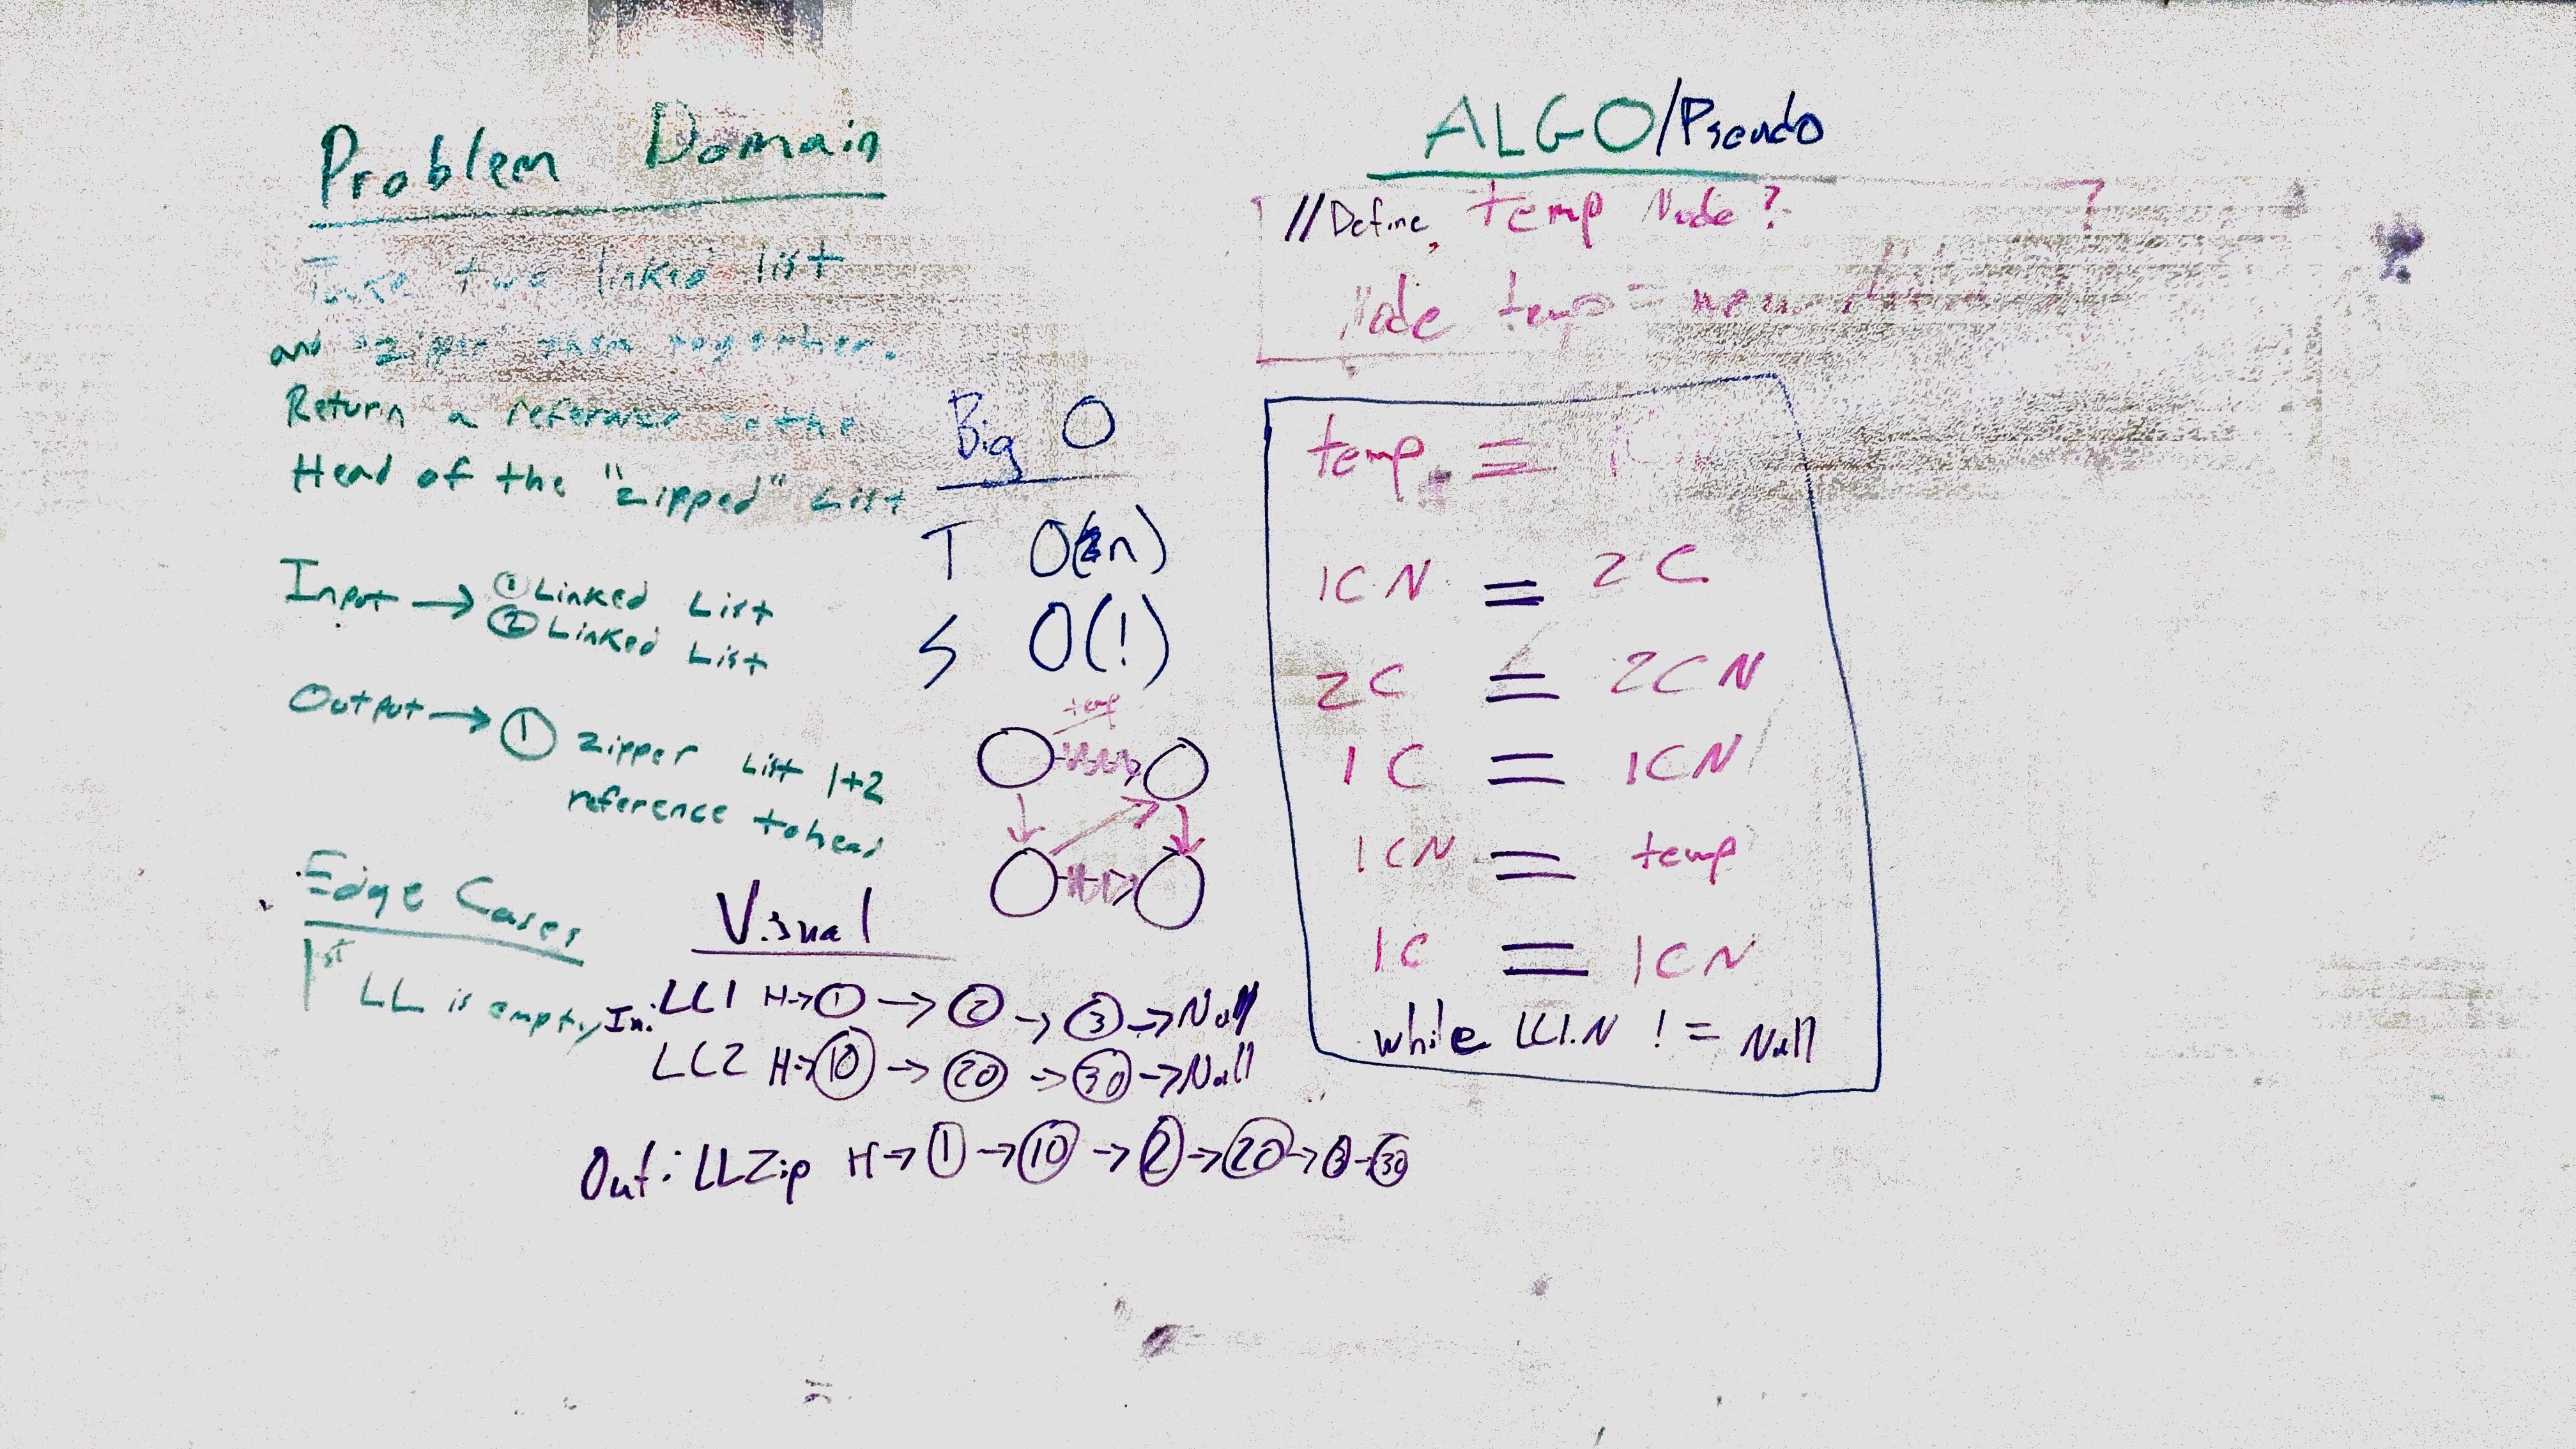 Problem Domain
Take two linked list
and "zipper" them together.
Return a reference to the
Head of the "zipped" List
Input → ① Linked List
② Linked List
Output → ① Zipper List 1+2
reference to head
Edge Cases
1st LL is empty
Big O
T O(n)
S O(!)
temp
Visual
In: LL1 H→①→②→③→Null
LL2 H→⑩→⑳→㉚→Null
Out: LLZip H→①→⑩→②→⑳→③→㉚
ALGO/Pseudo
//Define, temp Node?
Node temp = new
temp =
1CN = 2C
2C = 2CN
1C = 1CN
1CN = temp
1C = 1CN
while LL1.N != Null